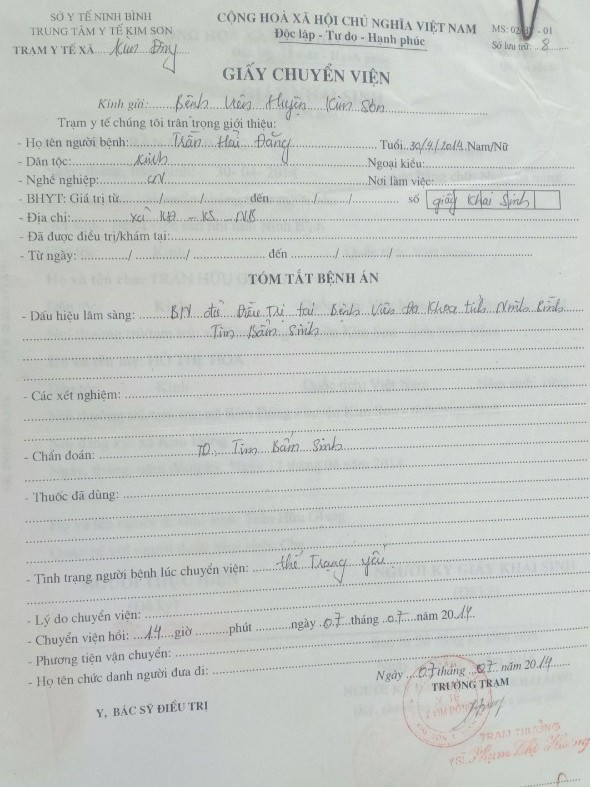 SỞ Y TẾ NINH BÌNH
TRUNG TÂM Y TẾ KIM SƠN
TRẠM Y TẾ XÃ Kim Đông
CỘNG HOÀ XÃ HỘI CHỦ NGHĨA VIỆT NAM
Độc lập - Tự do - Hạnh phúc
MS: 02 - 01
Số lưu trữ: 8
GIẤY CHUYỂN VIỆN
Kính gửi: Bệnh Viện Huyện Kim Sơn
Trạm y tế chúng tôi trân trọng giới thiệu:
- Họ tên người bệnh: Trần Hải Đăng Tuổi 30/4/2014 Nam/Nữ
- Dân tộc: Kinh Ngoại kiều:
- Nghề nghiệp: Nơi làm việc:
- BHYT: Giá trị từ / / đến / / số giấy Khai Sinh
- Địa chỉ: xã KĐ - KS - NB
- Đã được điều trị/khám tại:
- Từ ngày: / / đến / /
TÓM TẮT BỆNH ÁN
- Dấu hiệu lâm sàng: BN đã Điều Trị tại Bệnh Viện Đa Khoa tỉnh Ninh Bình
Tim Bẩm Sinh
- Các xét nghiệm:
- Chẩn đoán: TD. Tim Bẩm Sinh
- Thuốc đã dùng:
- Tình trạng người bệnh lúc chuyển viện: thể Trạng yếu
- Lý do chuyển viện:
- Chuyển viện hồi: 14 giờ phút ngày 07 tháng 07 năm 2014
- Phương tiện vận chuyển:
- Họ tên chức danh người đưa đi:
Ngày 07 tháng 07 năm 2014
Y, BÁC SỸ ĐIỀU TRỊ
TRƯỞNG TRẠM
TRẠM TRƯỞNG